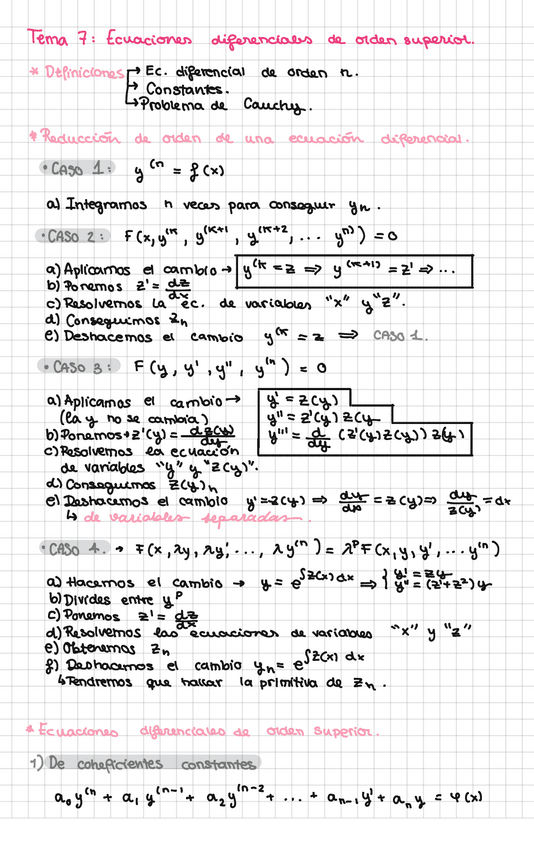 Tema 7: Ecuaciones diferenciales de orden superior.
* Definiciones → Ec. diferencial de orden n.
→ Constantes.
→ Problema de Cauchy.
* Reducción de orden de una ecuación diferencial.
• CASO 1: y⁽ⁿ = f(x)
a) Integramos n veces para conseguir yₙ.
• CASO 2: F(x, y⁽ᴷ, y⁽ᴷ⁺¹, y⁽ᴷ⁺², ... yⁿ⁾) = 0
a) Aplicamos el cambio → y⁽ᴷ = z ⇒ y⁽ᴷ⁺¹⁾ = z' ⇒ ...
b) Ponemos z' = dz/dx
c) Resolvemos la ec. de variables "x" y "z".
d) Conseguimos zₙ
e) Deshacemos el cambio y⁽ᴷ = z ⇒ CASO 1.
• CASO 3: F(y, y', y'', y⁽ⁿ) = 0
a) Aplicamos el cambio → y' = z(y)
(la y no se cambia) y'' = z'(y) z(y
b) Ponemos → z'(y) = dz(y)/dy y''' = d/dy (z'(y) z(y)) z(y)
c) Resolvemos la ecuación
de variables "y" y "z(y)".
d) Conseguimos z(y)ₙ
e) Deshacemos el cambio y' = z(y) ⇒ dy/dx = z(y) ⇒ dy/z(y) = dx
↳ de variables separadas.
• CASO 4. → F(x, λy, λy', ..., λy⁽ⁿ) = λᴾF(x, y, y', ... y⁽ⁿ)
a) Hacemos el cambio → y = e^∫z(x)dx ⇒ { y' = zy
y'' = (z' + z²) y
b) Divides entre yᴾ
c) Ponemos z' = dz/dx
d) Resolvemos las ecuaciones de variables "x" y "z"
e) Obtenemos zₙ
f) Deshacemos el cambio yₙ = e^∫z(x) dx
↳ Tendremos que hallar la primitiva de zₙ.
* Ecuaciones diferenciales de orden superior.
1) De coheficientes constantes
a₀y⁽ⁿ + a₁y⁽ⁿ⁻¹ + a₂y⁽ⁿ⁻² + ... + aₙ₋₁y' + aₙy = φ(x)